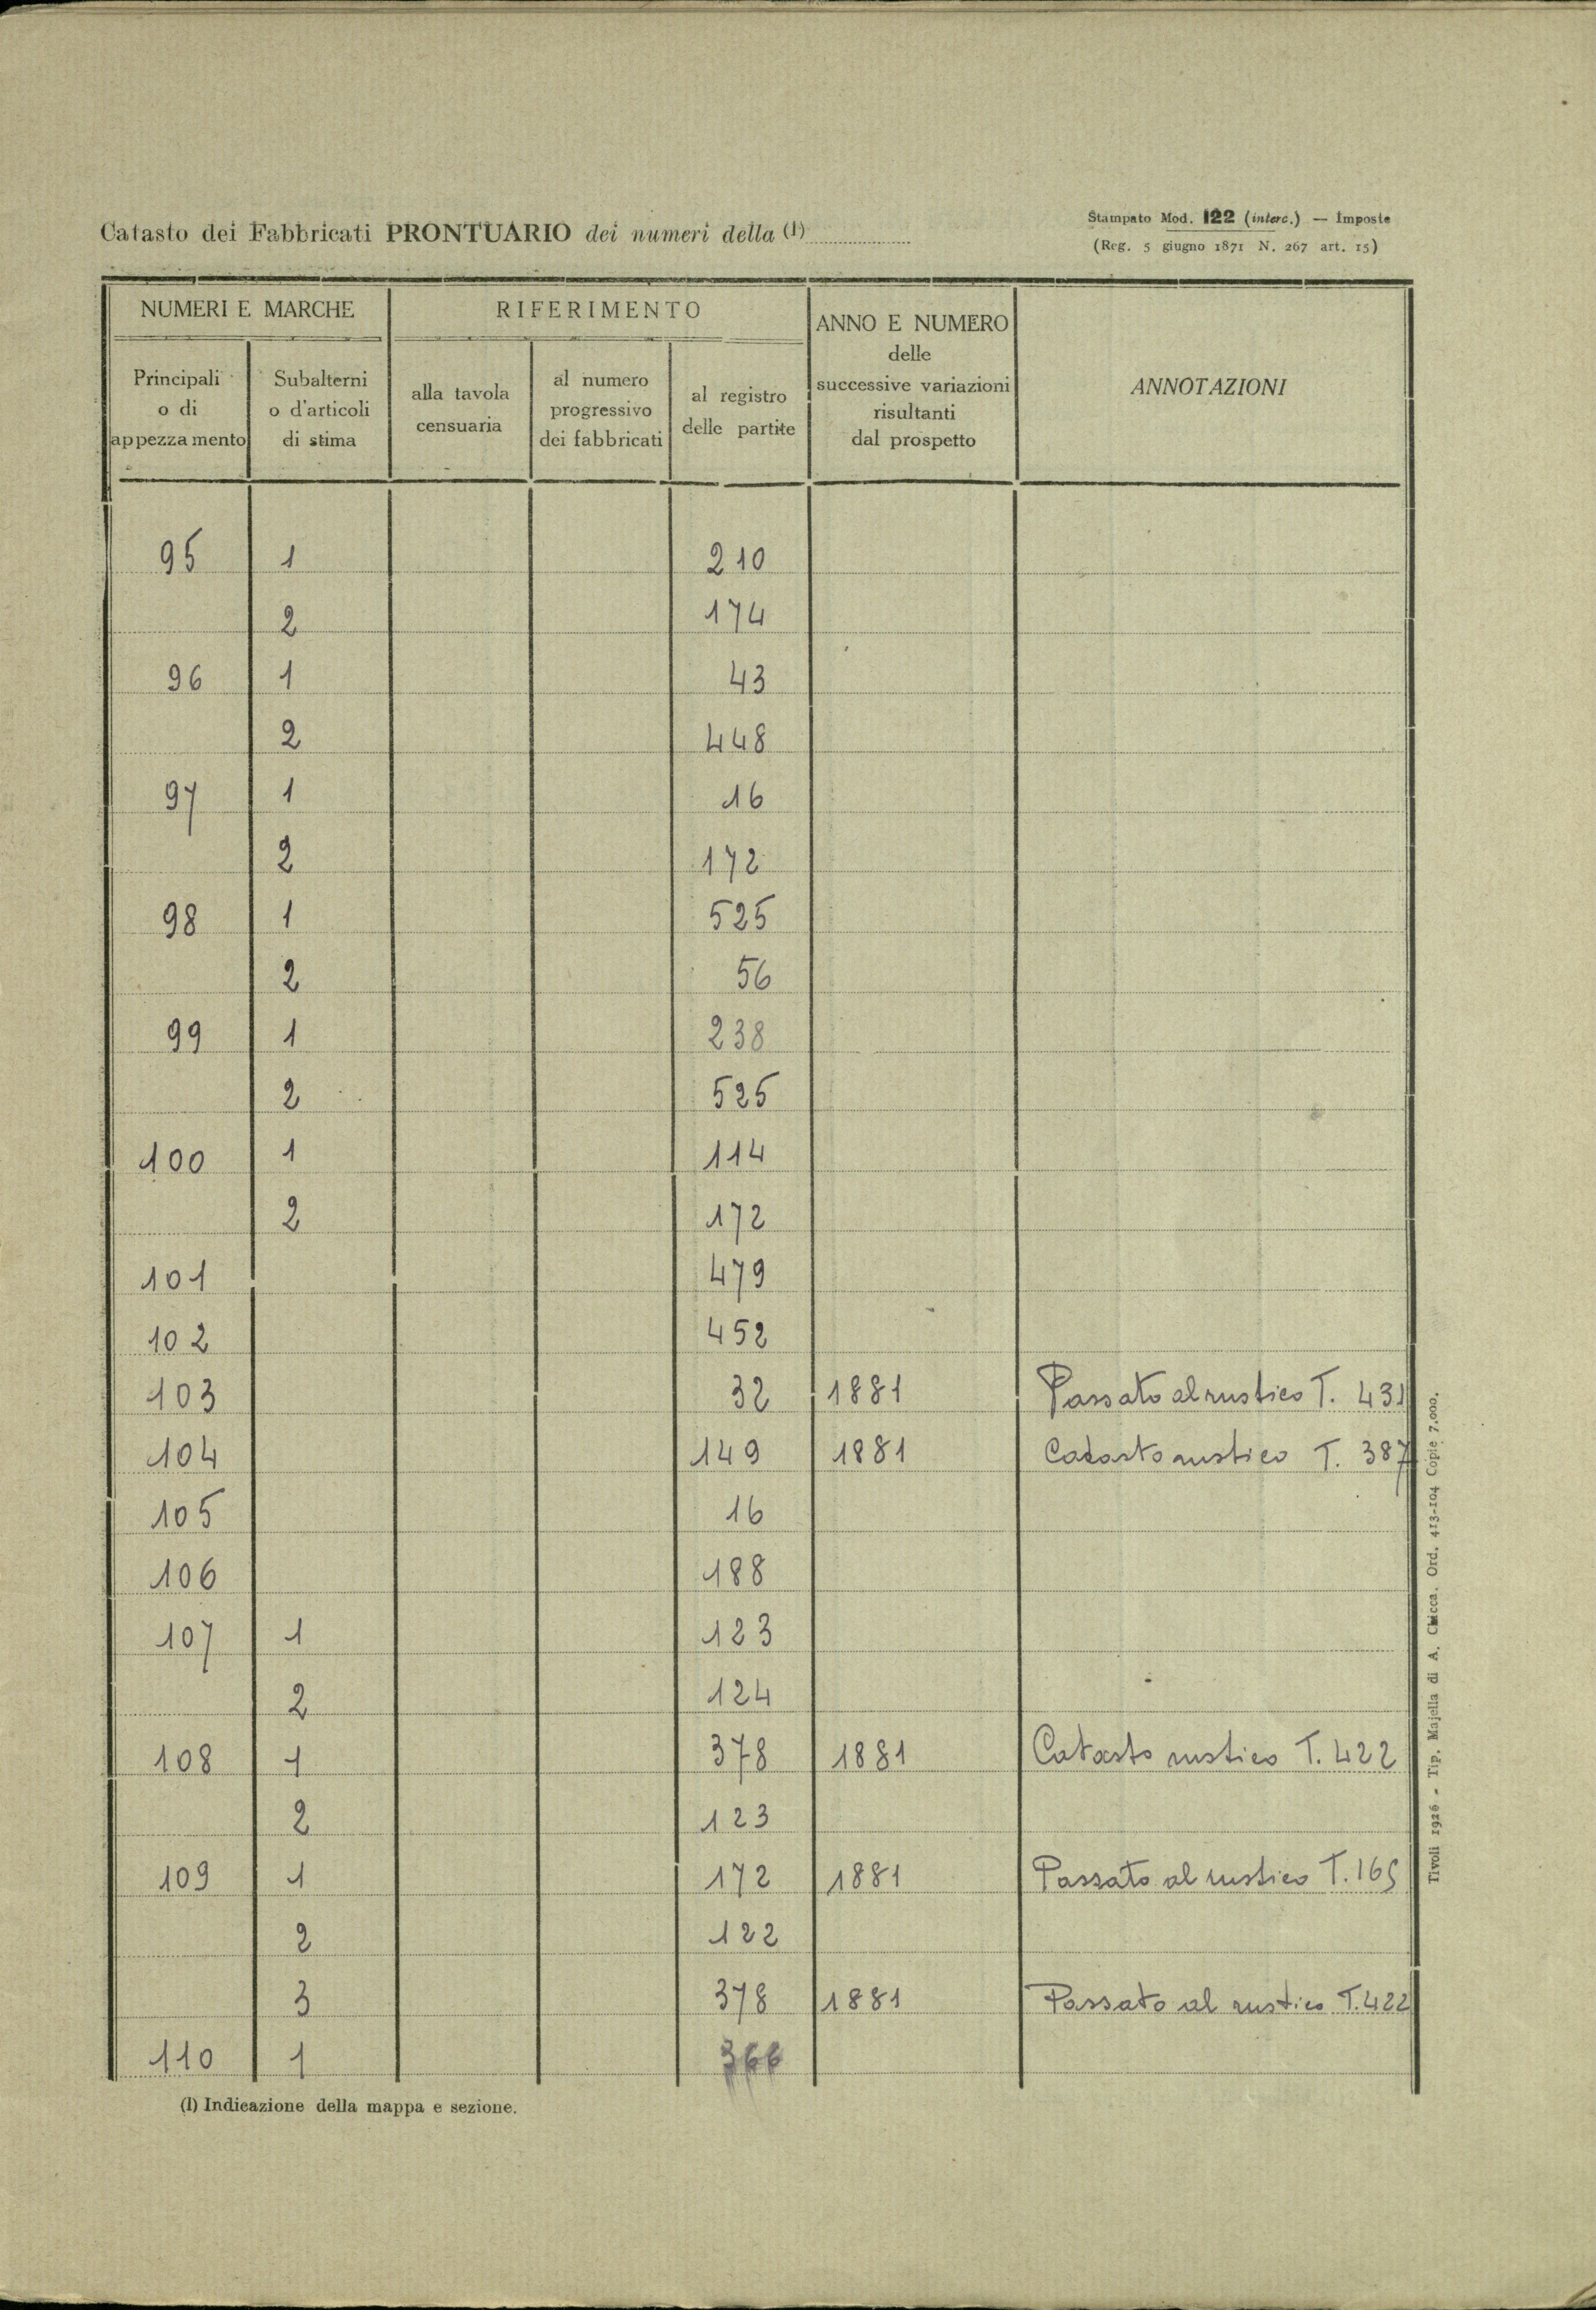 Catasto dei Fabbricati PRONTUARIO dei numeri della (1)
Stampato Mod. 122 (interc.) — Imposte
(Reg. 5 giugno 1871 N. 267 art. 15)
NUMERI E MARCHE
RIFERIMENTO
ANNO E NUMERO
delle
successive variazioni
risultanti
dal prospetto
ANNOTAZIONI
Principali
o di
appezzamento
Subalterni
o d'articoli
di stima
alla tavola
censuaria
al numero
progressivo
dei fabbricati
al registro
delle partite
95 1 210
2 174
96 1 43
2 448
97 1 16
2 172
98 1 525
2 56
99 1 238
2 525
100 1 114
2 172
101 479
102 452
103 32 1881 Passato al rustico T. 431
104 149 1881 Catasto rustico T. 387
105 16
106 188
107 1 123
2 124
108 1 378 1881 Catasto rustico T. 422
2 123
109 1 172 1881 Passato al rustico T. 165
2 122
3 378 1881 Passato al rustico T. 422
110 1 366
(1) Indicazione della mappa e sezione.
Tivoli 1926 - Tip. Majella di A. Chicca. Ord. 413-104 Copie 7.000.